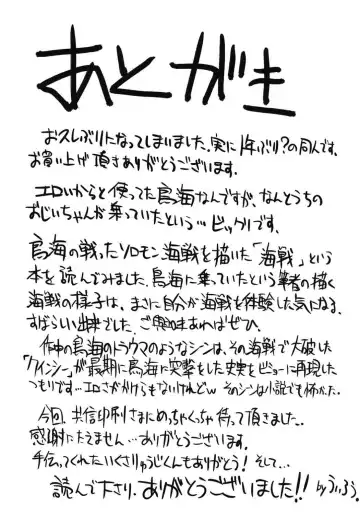 あとがき
お久しぶりになってしまいました。実に1年ぶり?の同人です。
お買い上げ頂きありがとうございます。
エロいからと使ってた鳥海なんですが、なんとうちの
おじいちゃんが乗っていたという…ビックリです。
鳥海の戦ったソロモン海戦を描いた「海戦」という
本を読んでみました。鳥海に乗っていたという筆者の描く
海戦の様子は、まさに自分が海戦を体験した気になる、
すばらしい出来でした。ご興味あればぜひ。
作中の鳥海のトラウマのようなシーンは、その海戦で大破した
「クインシー」が最期に鳥海に突撃をした史実をビミョーに再現した
つもりです…エロさがかけらもないけれどw そのシーンは小説でも怖かった。
今回、共信印刷さまにめっちゃくちゃ待って頂きました。
感謝にたえません…ありがとうございます。
手伝ってくれたいくさりゅうじくんもありがとう! そして…
読んで下さり、ありがとうございました!! by うぃろう。